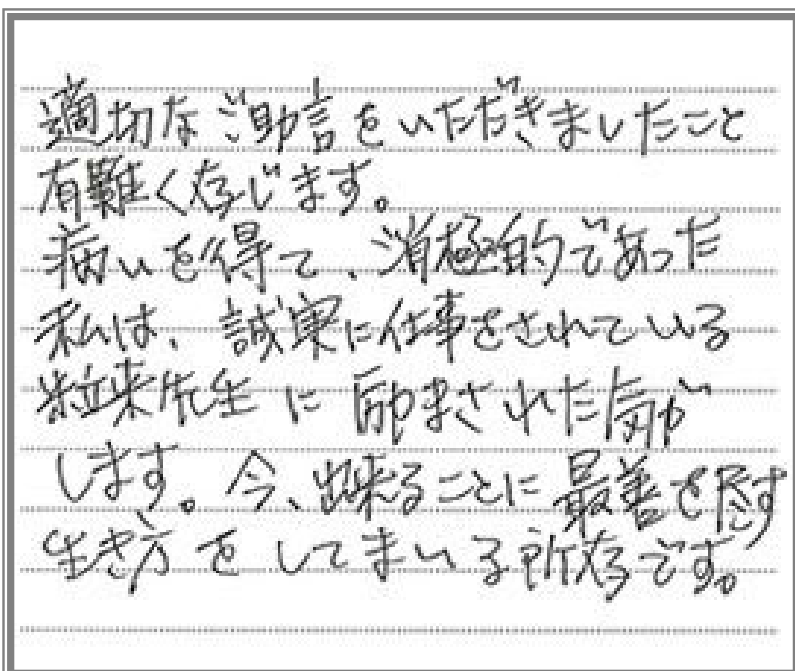 適切なご助言をいただきましたこと
有難く存じます。
病いを得て、消極的であった
私は、誠実に仕事をされている
粒来先生に励まされた気が
します。今、出来ることに最善を尽す
生き方をしてまいる所存です。